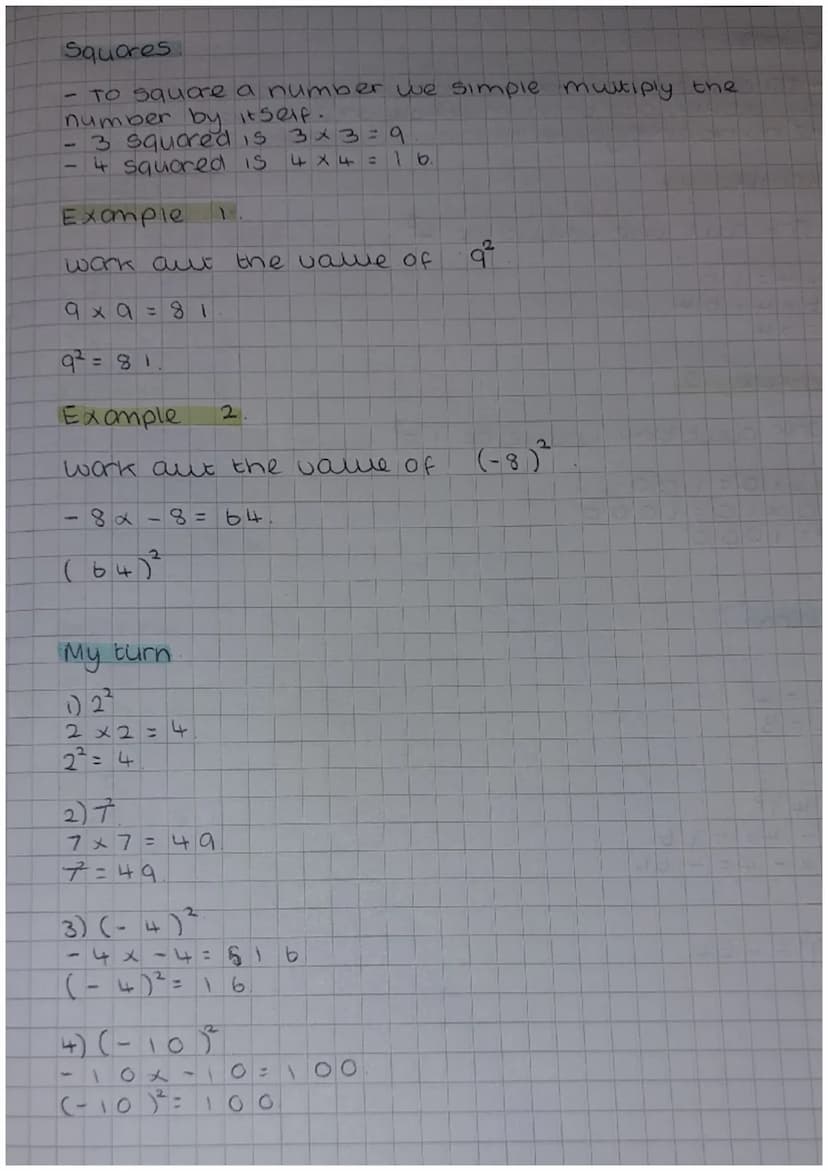 Squares
- To square a number we simple multiply the
number by itself.
- 3 squared is 3 x 3 = 9
- 4 squared is 4 x 4 = 16.
Example 1.
Work out the value of 9²
9 x 9 = 81.
9² = 81.
Example 2.
Work out the value of (-8)².
-8 x -8 = 64.
(64)²
My turn
1) 2²
2 x 2 = 4.
2² = 4
2) 7²
7 x 7 = 49.
7² = 49.
3) (-4)²
-4 x -4 = 16
(-4)² = 16
4) (-10)²
-10 x -10 = 100.
(-10)² = 100